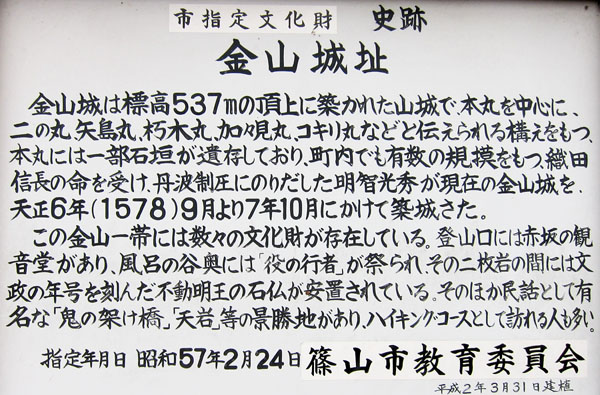 市指定文化財 史跡
金山城址
金山城は標高537mの頂上に築かれた山城で、本丸を中心に、
二の丸、矢島丸、朽木丸、加々見丸、コキリ丸などと伝えられる構えをもつ。
本丸には一部石垣が遺存しており、町内でも有数の規摸をもつ。織田
信長の命を受け、丹波制圧にのりだした明智光秀が現在の金山城を、
天正6年(1578)9月より7年10月にかけて築城さた。
この金山一帯には数々の文化財が存在している。登山口には赤坂の観
音堂があり、風呂の谷奥には「役の行者」が祭られ、その二枚岩の間には文
政の年号を刻んだ不動明王の石仏が安置されている。そのほか民話として有
名な「鬼の架け橋」、「天岩」等の景勝地があり、ハイキング・コースとして訪れる人も多い。
指定年月日 昭和57年2月24日 篠山市教育委員会
平成2年3月31日建植